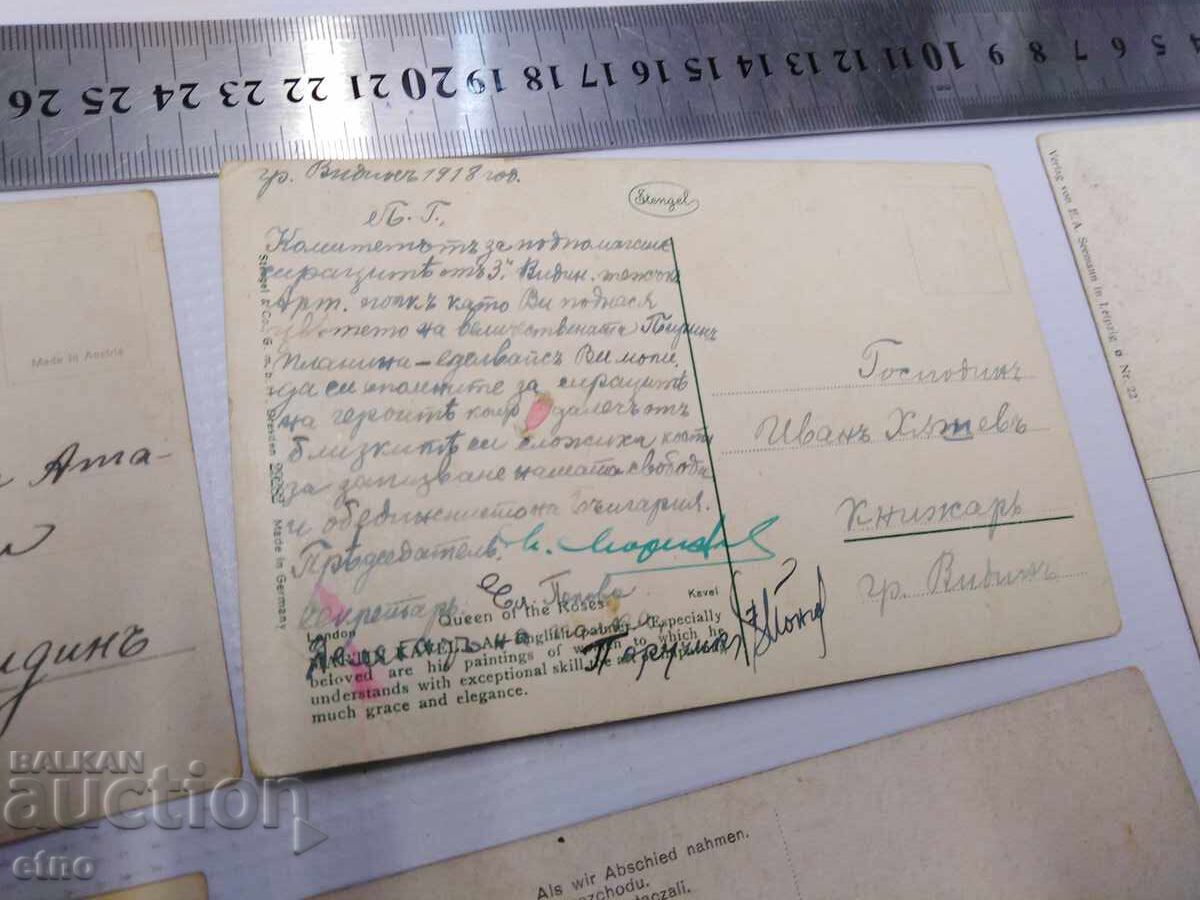 26 25 24 23 22 21 20 19 18 17 16 15 14 13 12 11 10 9 8 7 6 5 4
гр. Видинъ 1918 год.
Stengel
Комитетътъ за подпомагане
сирацитѣ отъ 3. Видин. тежъкъ
Арт. полкъ като Ви поднася
цвѣтето на величествената Пиринъ
планина – еделвайсъ Ви моли,
да си спомните за сирацитѣ
на героитѣ които далечъ отъ
близкитѣ си сложиха кости
за запазване нашата свобода
и обединението на България.
Прѣдседатель:
Секретарь: Попова
Stengel & Co., G. m. b. Dresden Made in Germany
London Queen of the Roses Kavel
An English painter. Especially
beloved are his paintings of women to which he
understands with exceptional skill
much grace and elegance.
Господинъ
Иванъ
Книжаръ
гр. Видинъ
Made in Austria
Verlag von E. A. Seemann in Leipzig Nr. 22
Als wir Abschied nahmen.
BALKAN
auction
etno